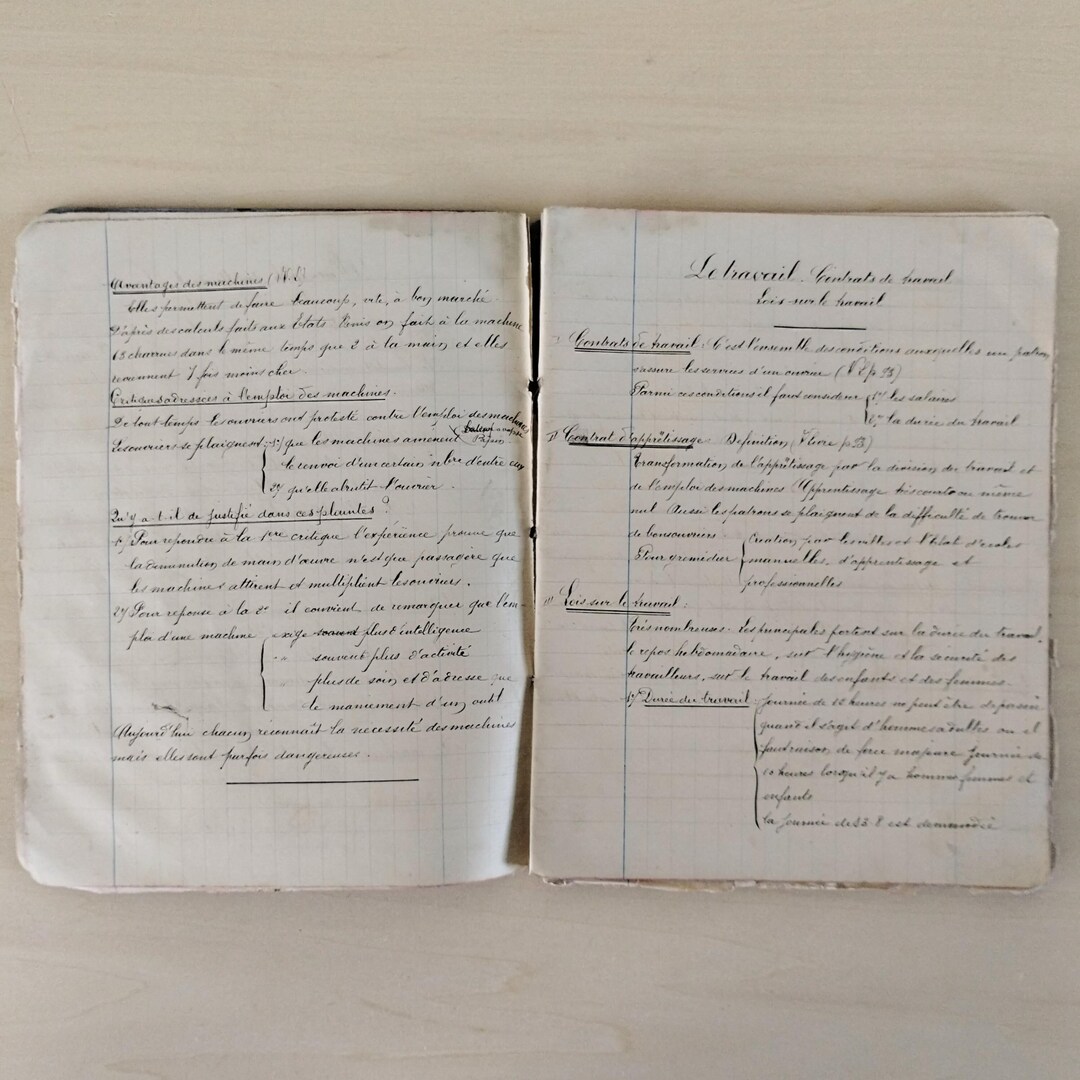 Avantages des machines
Elles permettent de faire beaucoup, vite, à bon marché
D'après des calculs faits aux États Unis on fait à la machine
charrues dans le même temps que 2 à la main et elles
reviennent 7 fois moins cher.
Critiques adressées à l'emploi des machines.
De tout temps les ouvriers ont protesté contre l'emploi des machines
bateau à vapeur
Papin
Les ouvriers se plaignent 1º) que les machines amènent
le renvoi d'un certain nbre d'entre eux
2º) qu'elle abrutit l'ouvrier.
Qu'y a-t-il de justifié dans ces plaintes ?
1º) Pour répondre à la 1ère critique l'expérience prouve que
la diminution de main d'œuvre n'est que passagère que
les machines attirent et multiplient les ouvriers.
2º) Pour réponse à la 2e il convient de remarquer que l'em-
ploi d'une machine exige souvent plus d'intelligence
souvent plus d'activité
plus de soin et d'adresse que
le maniement d'un outil
Aujourd'hui chacun reconnaît la nécessité des machines
mais elles sont parfois dangereuses.
Le travail. Contrats de travail
Lois sur le travail
I) Contrats de travail. C'est l'ensemble des conditions auxquelles un patron
s'assure les services d'un ouvrier
Parmi ces conditions il faut considérer 1º) les salaires
2º) la durée du travail
II) Contrat d'apprêtissage. Définition (livre p. 93)
Transformation de l'apprêtissage par la division du travail et
de l'emploi des machines Apprentissage très court ou même
nul Aussi les patrons se plaignent de la difficulté de trouver
de bons ouvriers
Pour y remédier création par les villes et l'État d'écoles
manuelles, d'apprentissage et
professionnelles
III) Lois sur le travail :
très nombreuses. Les principales portent sur la durée du travail,
le repos hebdomadaire, sur l'hygiène et la sécurité des
travailleurs, sur le travail des enfants et des femmes.
1º) Durée du travail journée de 12 heures ne peut être dépassée
quand il s'agit d'hommes adultes ou il
faut raison de force majeure journée de
10 heures lorsqu'il y a hommes femmes et
enfants
la journée de 8 est demandée